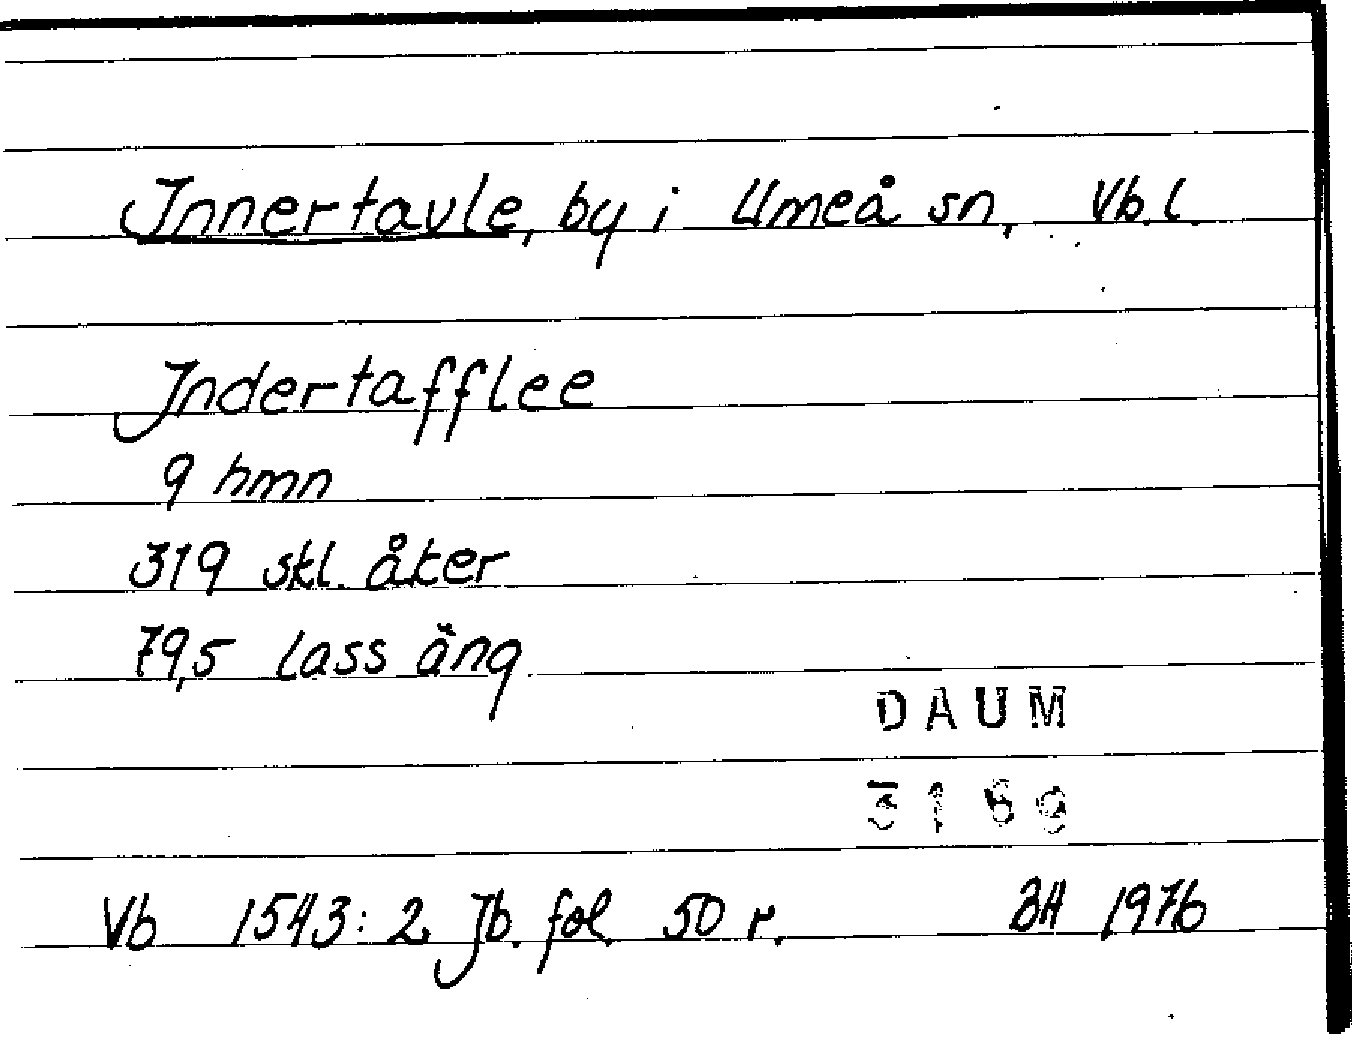 Innertavle, by i Umeå sn, Vb.l.
Indertafflee
9 hmn
319 skl. åker
79,5 lass äng
DAUM
3169
Vb 1543:2 Jb. fol. 50 r. BH 1976